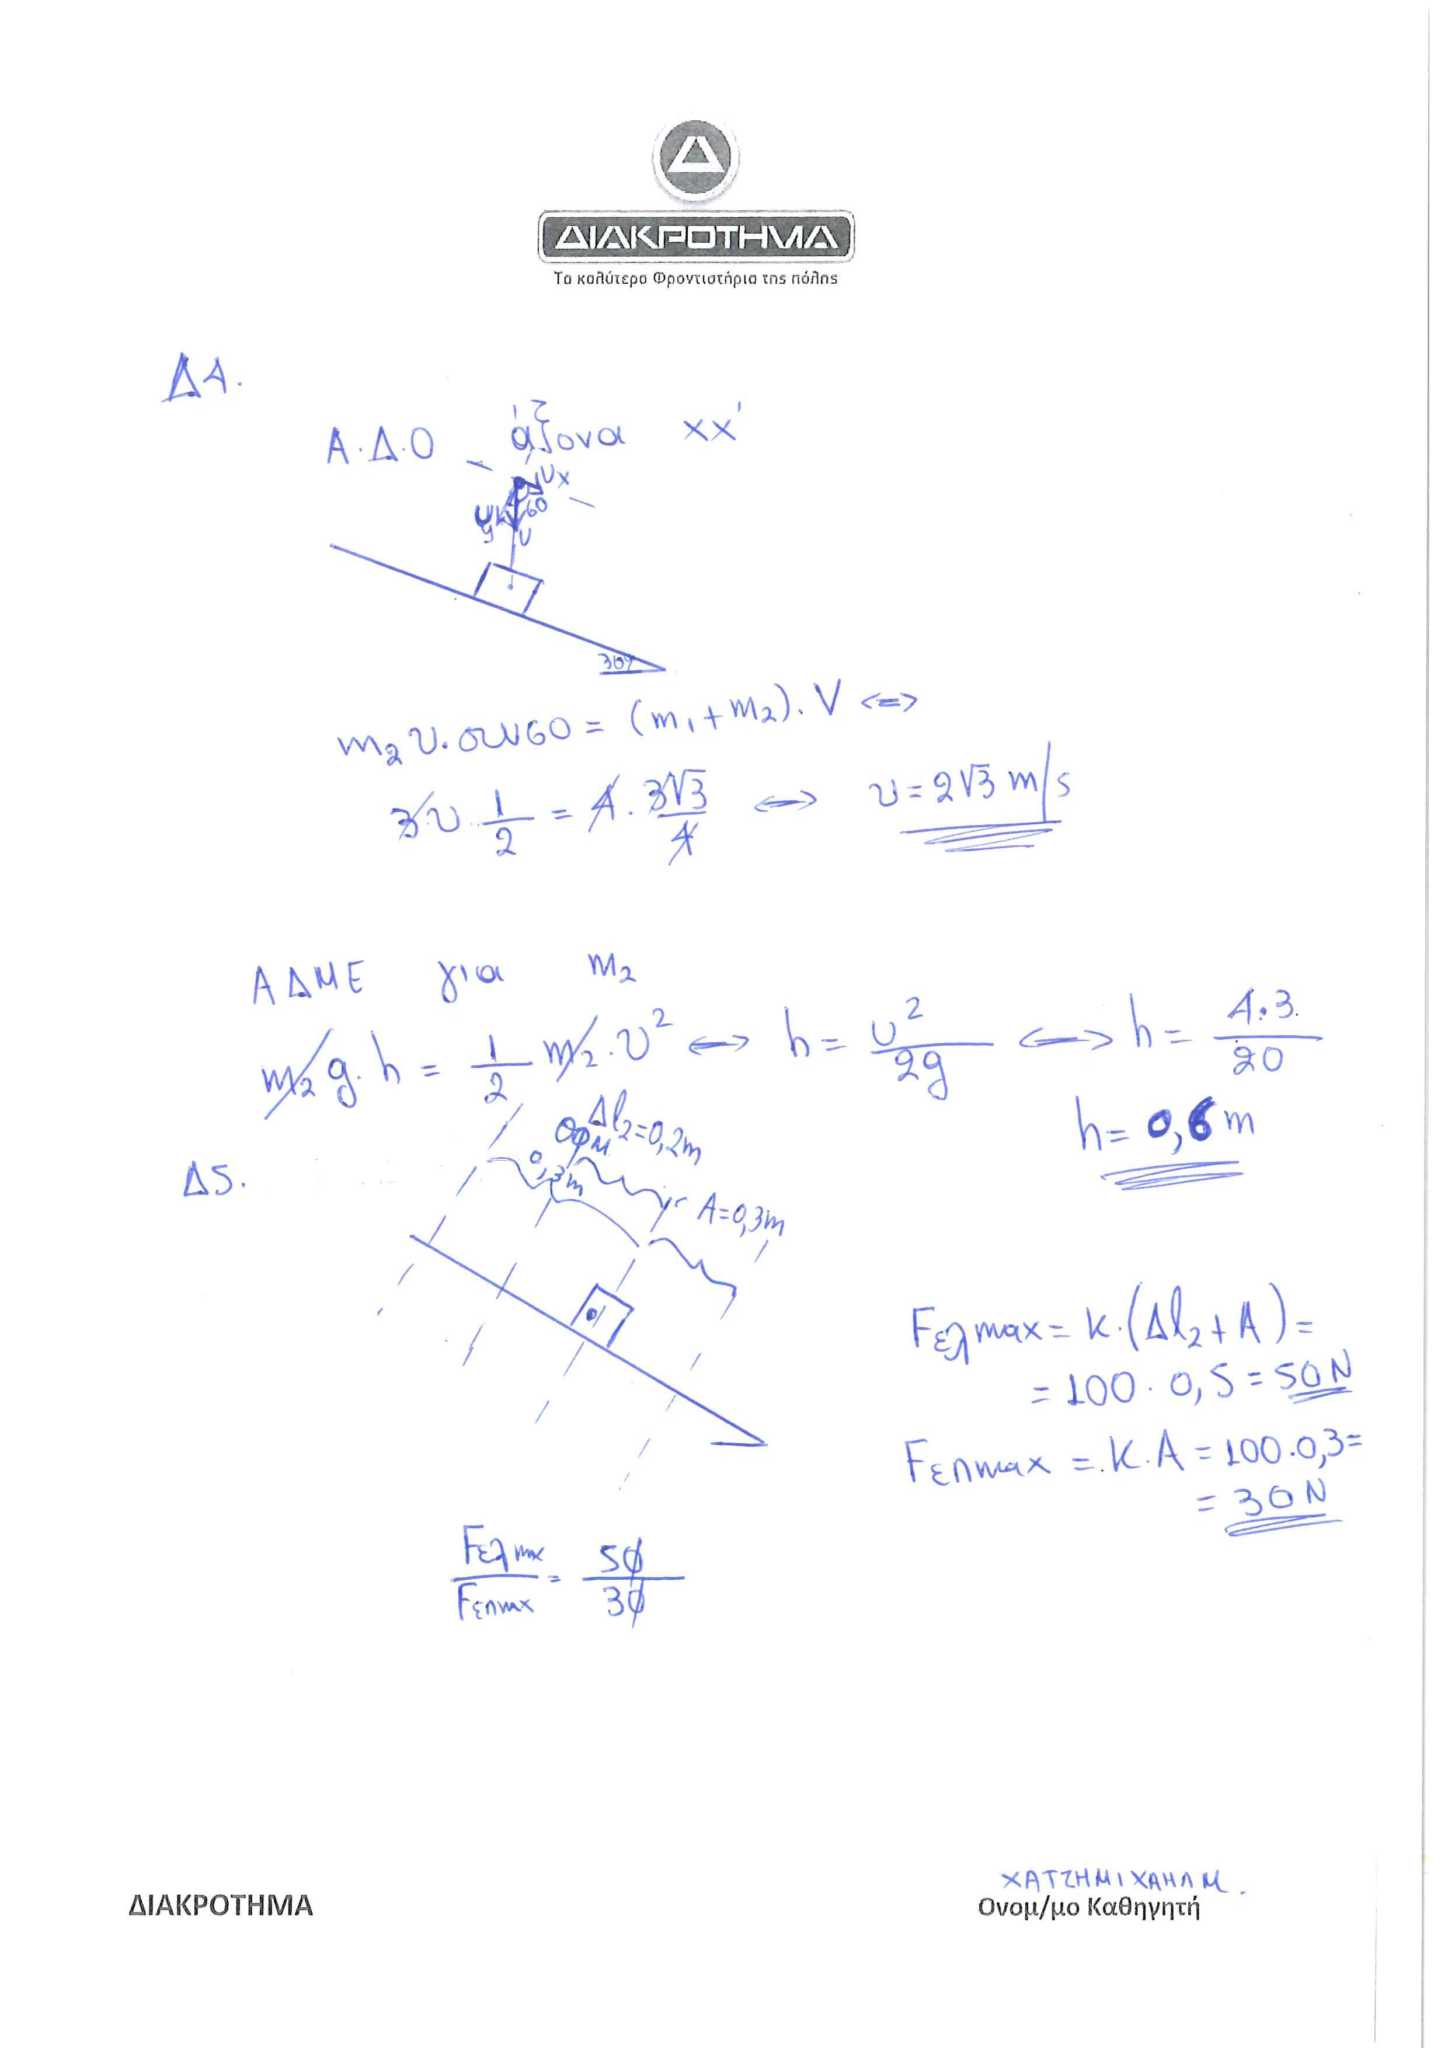 ΔΙΑΚΡΟΤΗΜΑ
Τα καλύτερα Φροντιστήρια της πόλης
Δ4.
Α.Δ.Ο άξονα xx'
υx
60
υy
υ
30°
m₂υ.συν60 = (m₁+m₂).V <=>
3υ.1/2 = 4.3√3/4 <=> υ = 2√3 m/s
ΑΔΜΕ για m₂
m₂g.h = 1/2 m₂.υ² <=> h = υ²/2g <=> h = 4.3/20
h = 0,6 m
Δ5.
Δl₂=0,2m
ΘΦΜ
0,3m
A=0,3m
Fελmax = k.(Δl₂+A) =
= 100.0,5 = 50N
Fεπmax = k.A = 100.0,3 =
= 30N
Fελmax/Fεπmax = 50/30
ΧΑΤΖΗΜΙΧΑΗΛ Μ.
ΔΙΑΚΡΟΤΗΜΑ Ονομ/μο Καθηγητή